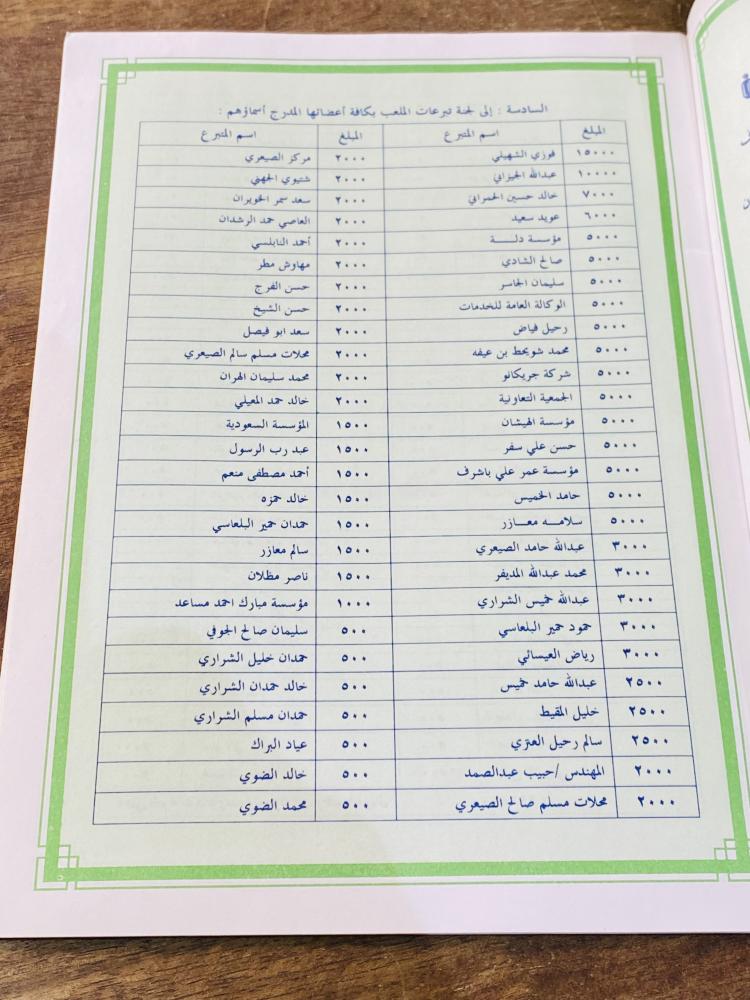 السادسة : إلى لجنة تبرعات الملعب بكافة أعضائها المدرج أسماؤهم :
المبلغ اسم المتبرع المبلغ اسم المتبرع
١٥٠٠٠ فوزي الشهيلي ٢٠٠٠ مركز الصيعري
١٠٠٠٠ عبدالله الجيزاني ٢٠٠٠ شتيوي الجهني
٧٠٠٠ خالد حسين الحمراني ٢٠٠٠ سعد سمر الخويران
٦٠٠٠ عويد سعيد ٢٠٠٠ العاصي حمد الرشدان
٥٠٠٠ مؤسسة دلــــة ٢٠٠٠ أحمد النابلسي
٥٠٠٠ صالح الشادي ٢٠٠٠ مهاوش مطر
٥٠٠٠ سليمان الجاسر ٢٠٠٠ حسن الفرج
٥٠٠٠ الوكالة العامة للخدمات ٢٠٠٠ حسن الشيخ
٥٠٠٠ رحيل فياض ٢٠٠٠ سعد ابو فيصل
٥٠٠٠ محمد شويحط بن عيفه ٢٠٠٠ محلات مسلم سالم الصيعري
٥٠٠٠ شركة جريكانو ٢٠٠٠ محمد سليمان الهران
٥٠٠٠ الجمعية التعاونية ٢٠٠٠ خالد حمد المعيلي
٥٠٠٠ مؤسسة الهيشان ١٥٠٠ المؤسسة السعودية
٥٠٠٠ حسن علي سفر ١٥٠٠ عبد رب الرسول
٥٠٠٠ مؤسسة عمر علي باشرف ١٥٠٠ أحمد مصطفى منعم
٥٠٠٠ حامد الخميس ١٥٠٠ خالد حمزه
٥٠٠٠ سلامــه معــازر ١٥٠٠ حمدان حمير البلعاسي
٣٠٠٠ عبدالله حامد الصيعري ١٥٠٠ سالم معازر
٣٠٠٠ محمد عبدالله المديفر ١٥٠٠ ناصر مظلان
٣٠٠٠ عبدالله خميس الشراري ١٠٠٠ مؤسسة مبارك احمد مساعد
٣٠٠٠ حمود حمير البلعاسي ٥٠٠ سليمان صالح الجوفي
٣٠٠٠ رياض العيسائي ٥٠٠ حمدان خليل الشراري
٢٥٠٠ عبدالله حامد خميس ٥٠٠ خالد حمدان الشراري
٢٥٠٠ خليل المقيط ٥٠٠ حمدان مسلم الشراري
٢٥٠٠ سالم رحيل العنزي ٥٠٠ عياد البراك
٢٠٠٠ المهندس /حبيب عبدالصمد ٥٠٠ خالد الضوي
٢٠٠٠ محلات مسلم صالح الصيعري ٥٠٠ محمد الضوي